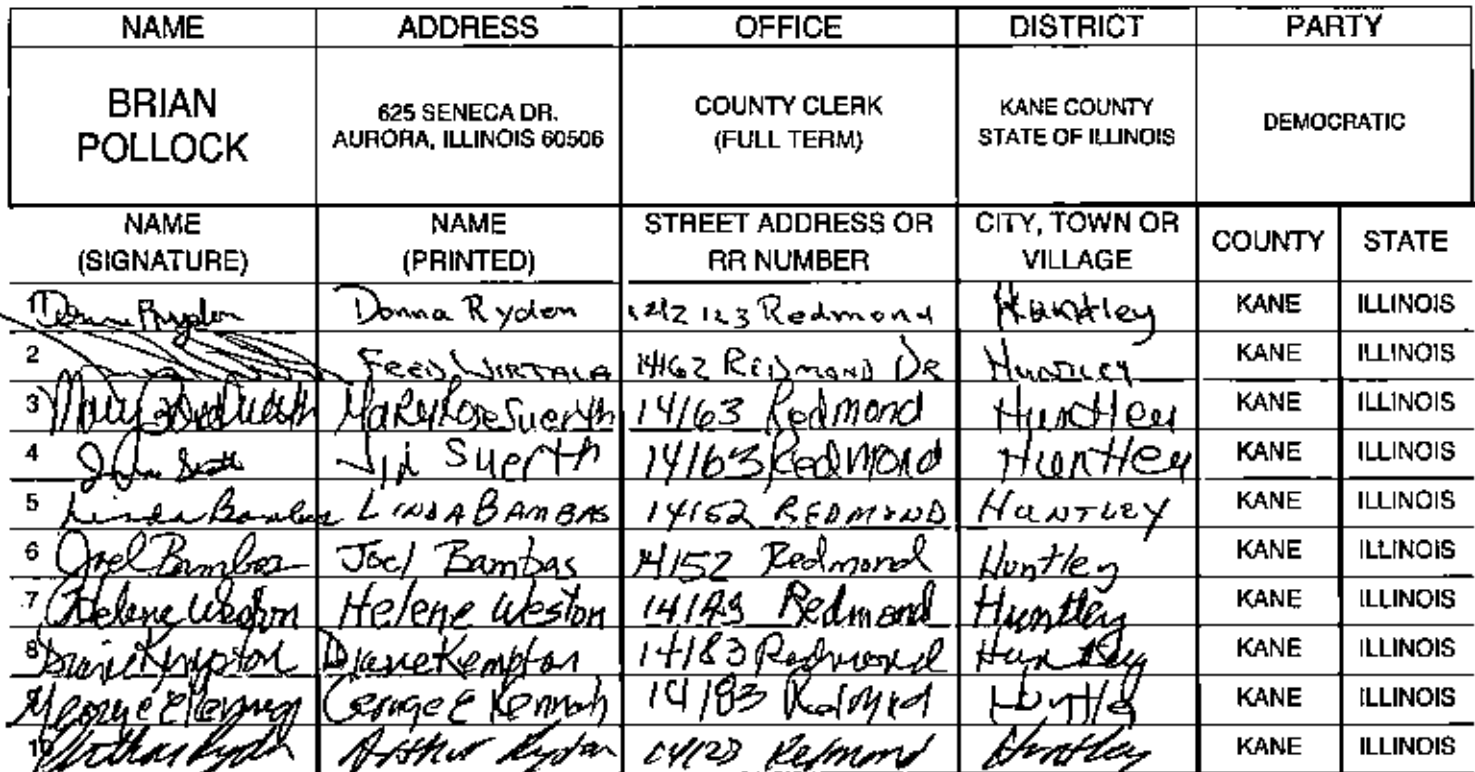 NAME ADDRESS OFFICE DISTRICT PARTY
BRIAN POLLOCK 625 SENECA DR. AURORA, ILLINOIS 60506 COUNTY CLERK (FULL TERM) KANE COUNTY STATE OF ILLINOIS DEMOCRATIC
NAME (SIGNATURE) NAME (PRINTED) STREET ADDRESS OR RR NUMBER CITY, TOWN OR VILLAGE COUNTY STATE
1 Donna Ryden Redmond Huntley KANE ILLINOIS
2 14162 REDMOND DR HUNTLEY KANE ILLINOIS
3 MaRyRose Suerth 14163 Redmond Huntley KANE ILLINOIS
4 Suerth 14163 Redmond Huntley KANE ILLINOIS
5 Linda Bambas LINDA BAMBAS 14152 REDMOND HUNTLEY KANE ILLINOIS
6 Joel Bambas Joel Bambas 14152 Redmond Huntley KANE ILLINOIS
7 Helene Weston Helene Weston Redmond Huntley KANE ILLINOIS
8 Diane Kempton Diane Kempton 14183 Redmond Huntley KANE ILLINOIS
George E George E 14183 Redmond Huntley KANE ILLINOIS
10 Arthur Ryden Arthur Ryden Redmond Huntley KANE ILLINOIS